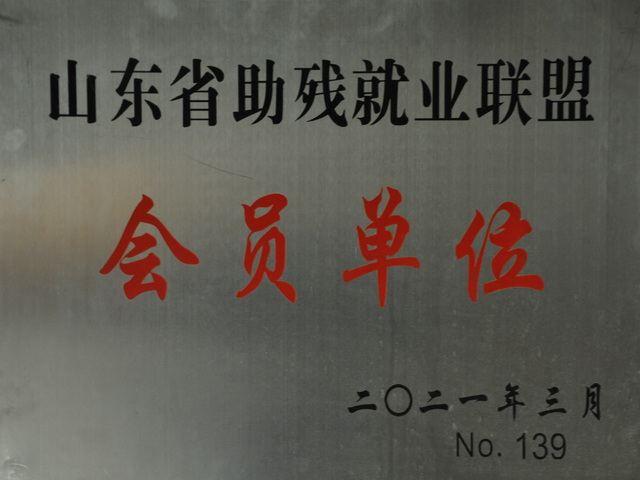 山东省助残就业联盟
会员单位
二〇二一年三月
No. 139